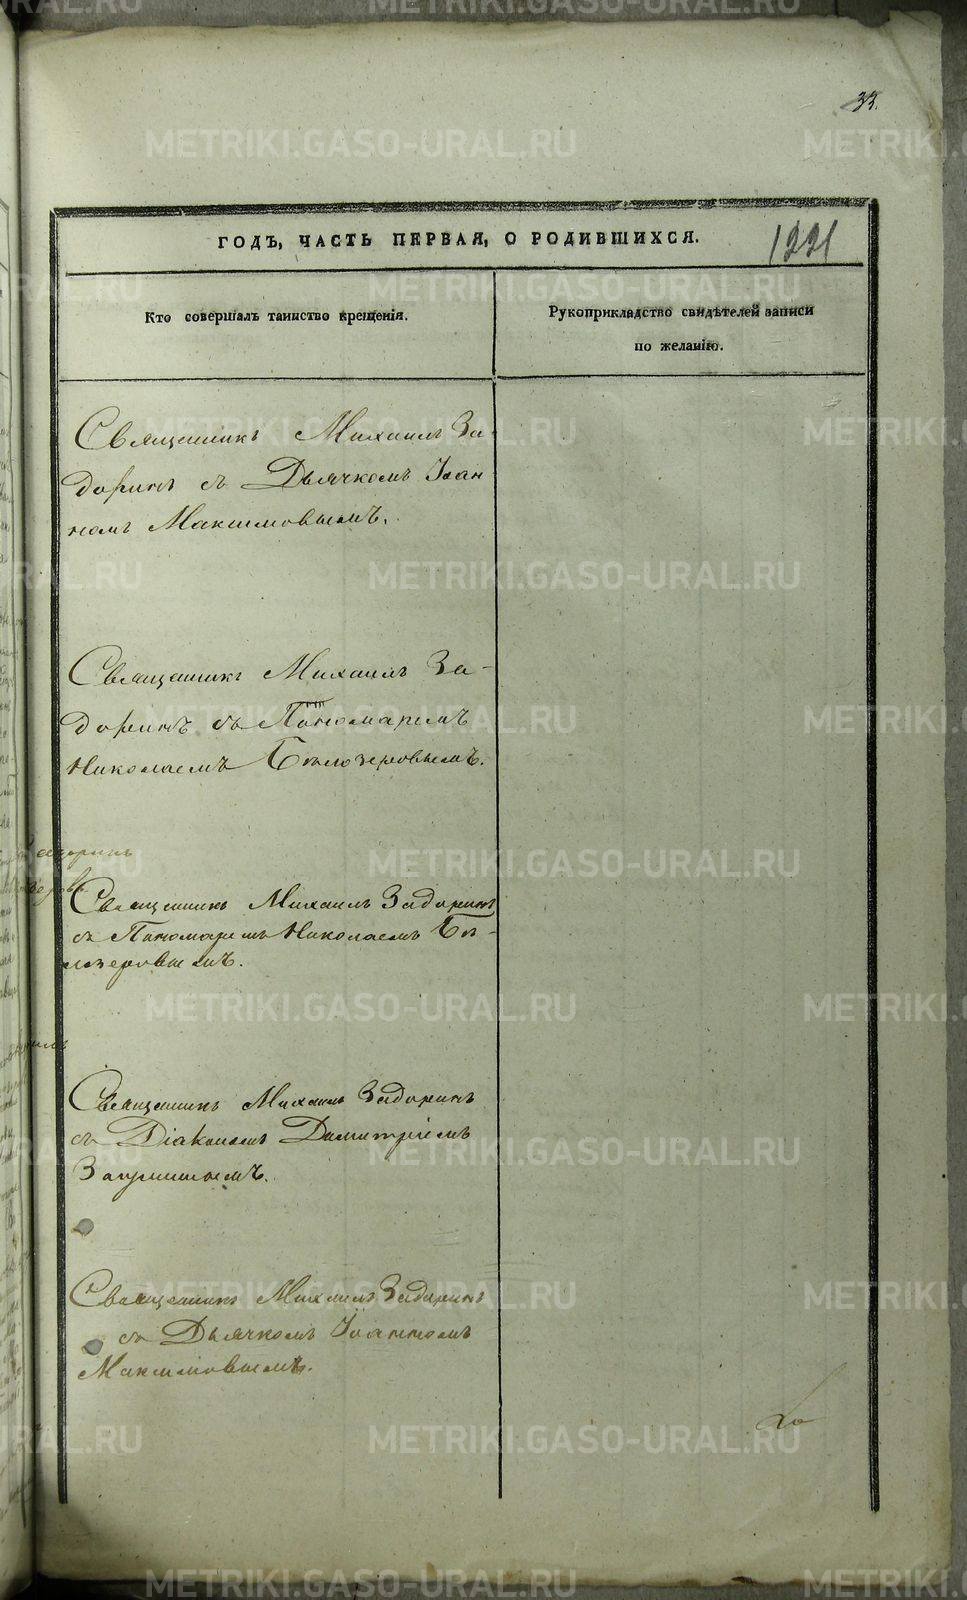 33.
ГОДЪ, ЧАСТЬ ПЕРВАЯ, О РОДИВШИХСЯ. 1221
Кто совершалъ таинство крещенія.
Рукоприкладство свидѣтелей записи
по желанію.
Священникъ Михаилъ За-
доринъ съ Дьячкомъ Іоан
номъ Максимовымъ.
Священникъ Михаилъ За-
доринъ съ Пономаремъ
Николаемъ Бѣлозеровымъ.
Священникъ Михаилъ Задоринъ
съ Пономаремъ Николаемъ Бѣ-
лозеровымъ.
Священникъ Михаилъ Задоринъ
съ Діакономъ Димитріемъ
Священникъ Михаилъ Задоринъ
съ Дьячкомъ Іоанномъ
Максимовымъ.
METRIKI.GASO-URAL.RU